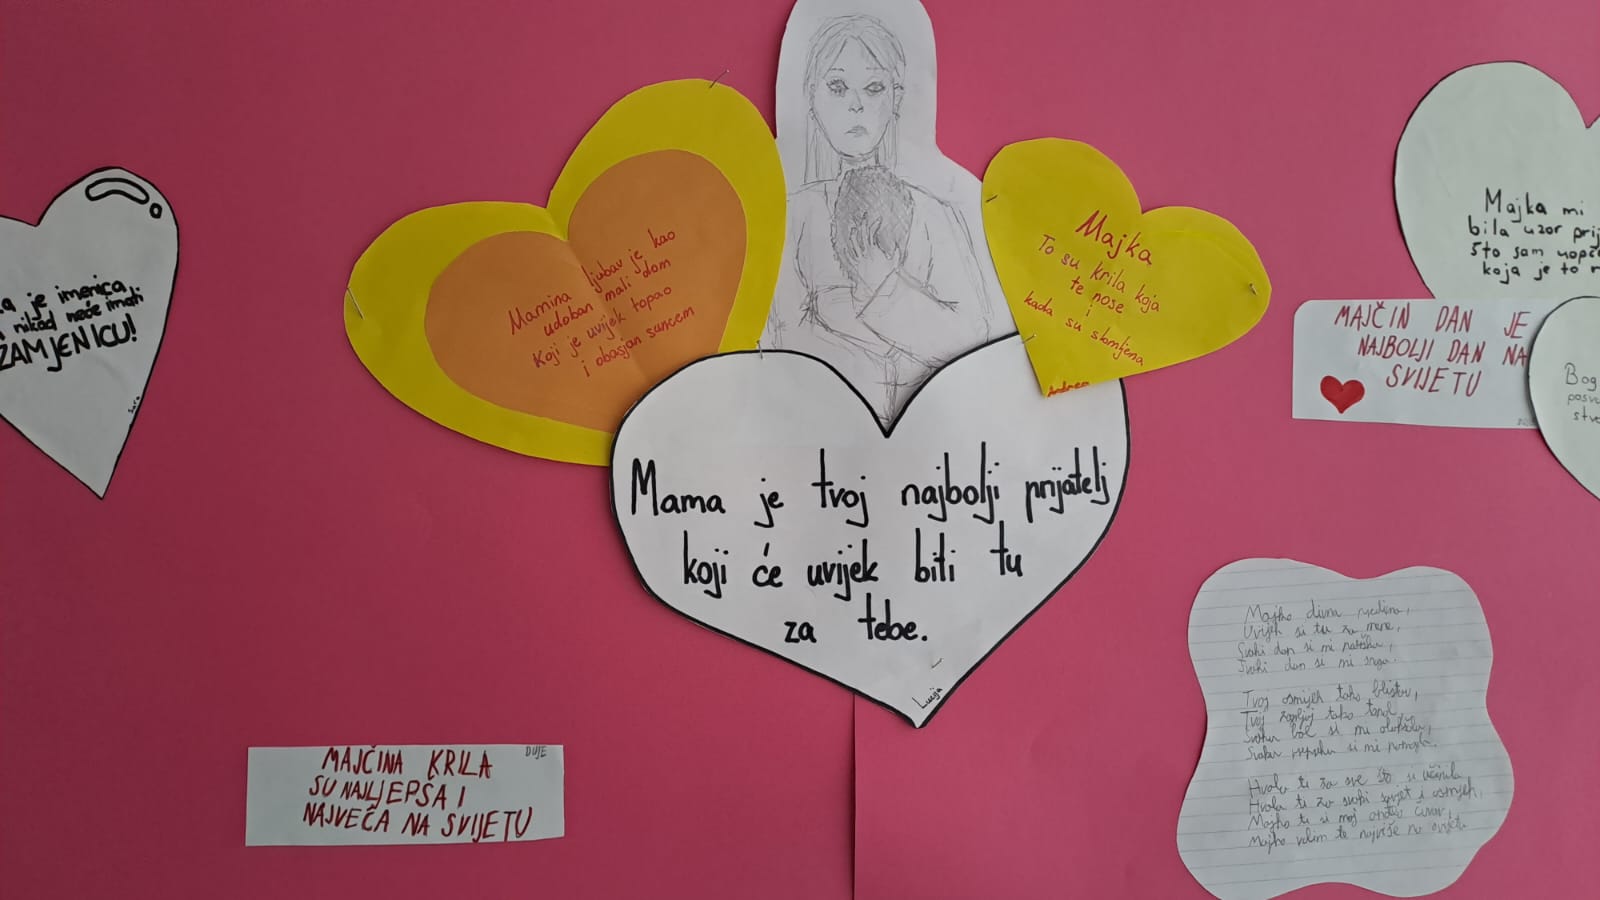 a je imenica
nikad neće imati
ZAMJENICU!
Sara
Mamina ljubav je kao
udoban mali dom
Koji je uvijek topao
i obasjan suncem
Majka
To su krila koja
te nose i
kada su slomljena
Andrea
Mama je tvoj najbolji prijatelj
koji će uvijek biti tu
za tebe.
Lucija
Majka mi
bila uzor prij
što sam uopće
koja je to
MAJČIN DAN JE
NAJBOLJI DAN NA
SVIJETU
Bog
posv
stv
DUJE
MAJČINA KRILA
SU NAJLJEPŠA I
NAJVEČA NA SVIJETU
Majko divna
Uvijek si tu za mene,
Svaki dan si mi
Svaki dan si mi snaga.
Tvoj osmijeh tako blistav,
Tvoj zagrljaj tako topal,
Svaku bol si mi
Svaku prepreku si mi
Hvala ti za sve što si učinila,
Hvala ti za svaki savjet i osmijeh,
Majko ti si moj anđeo čuvar,
Majko volim te najviše na svijetu